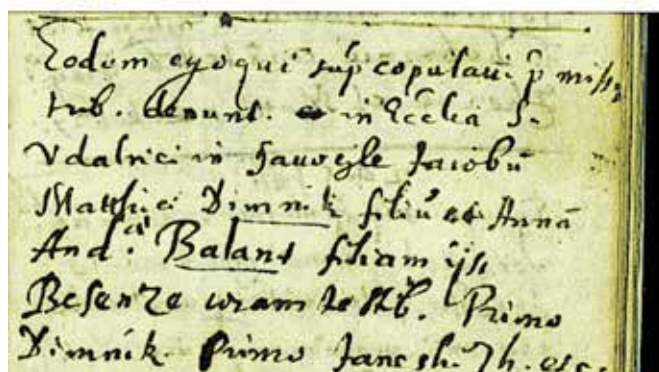 Eodem ego qui sup copulavi p̄ miss
trib. denunt. et in Ecclia S.
Vdalrici in Javorje Jacobū
Matthiæ Dimnik filiū et Annā
And. Balant filiam
coram testib. Primo
Dimnik. Primo